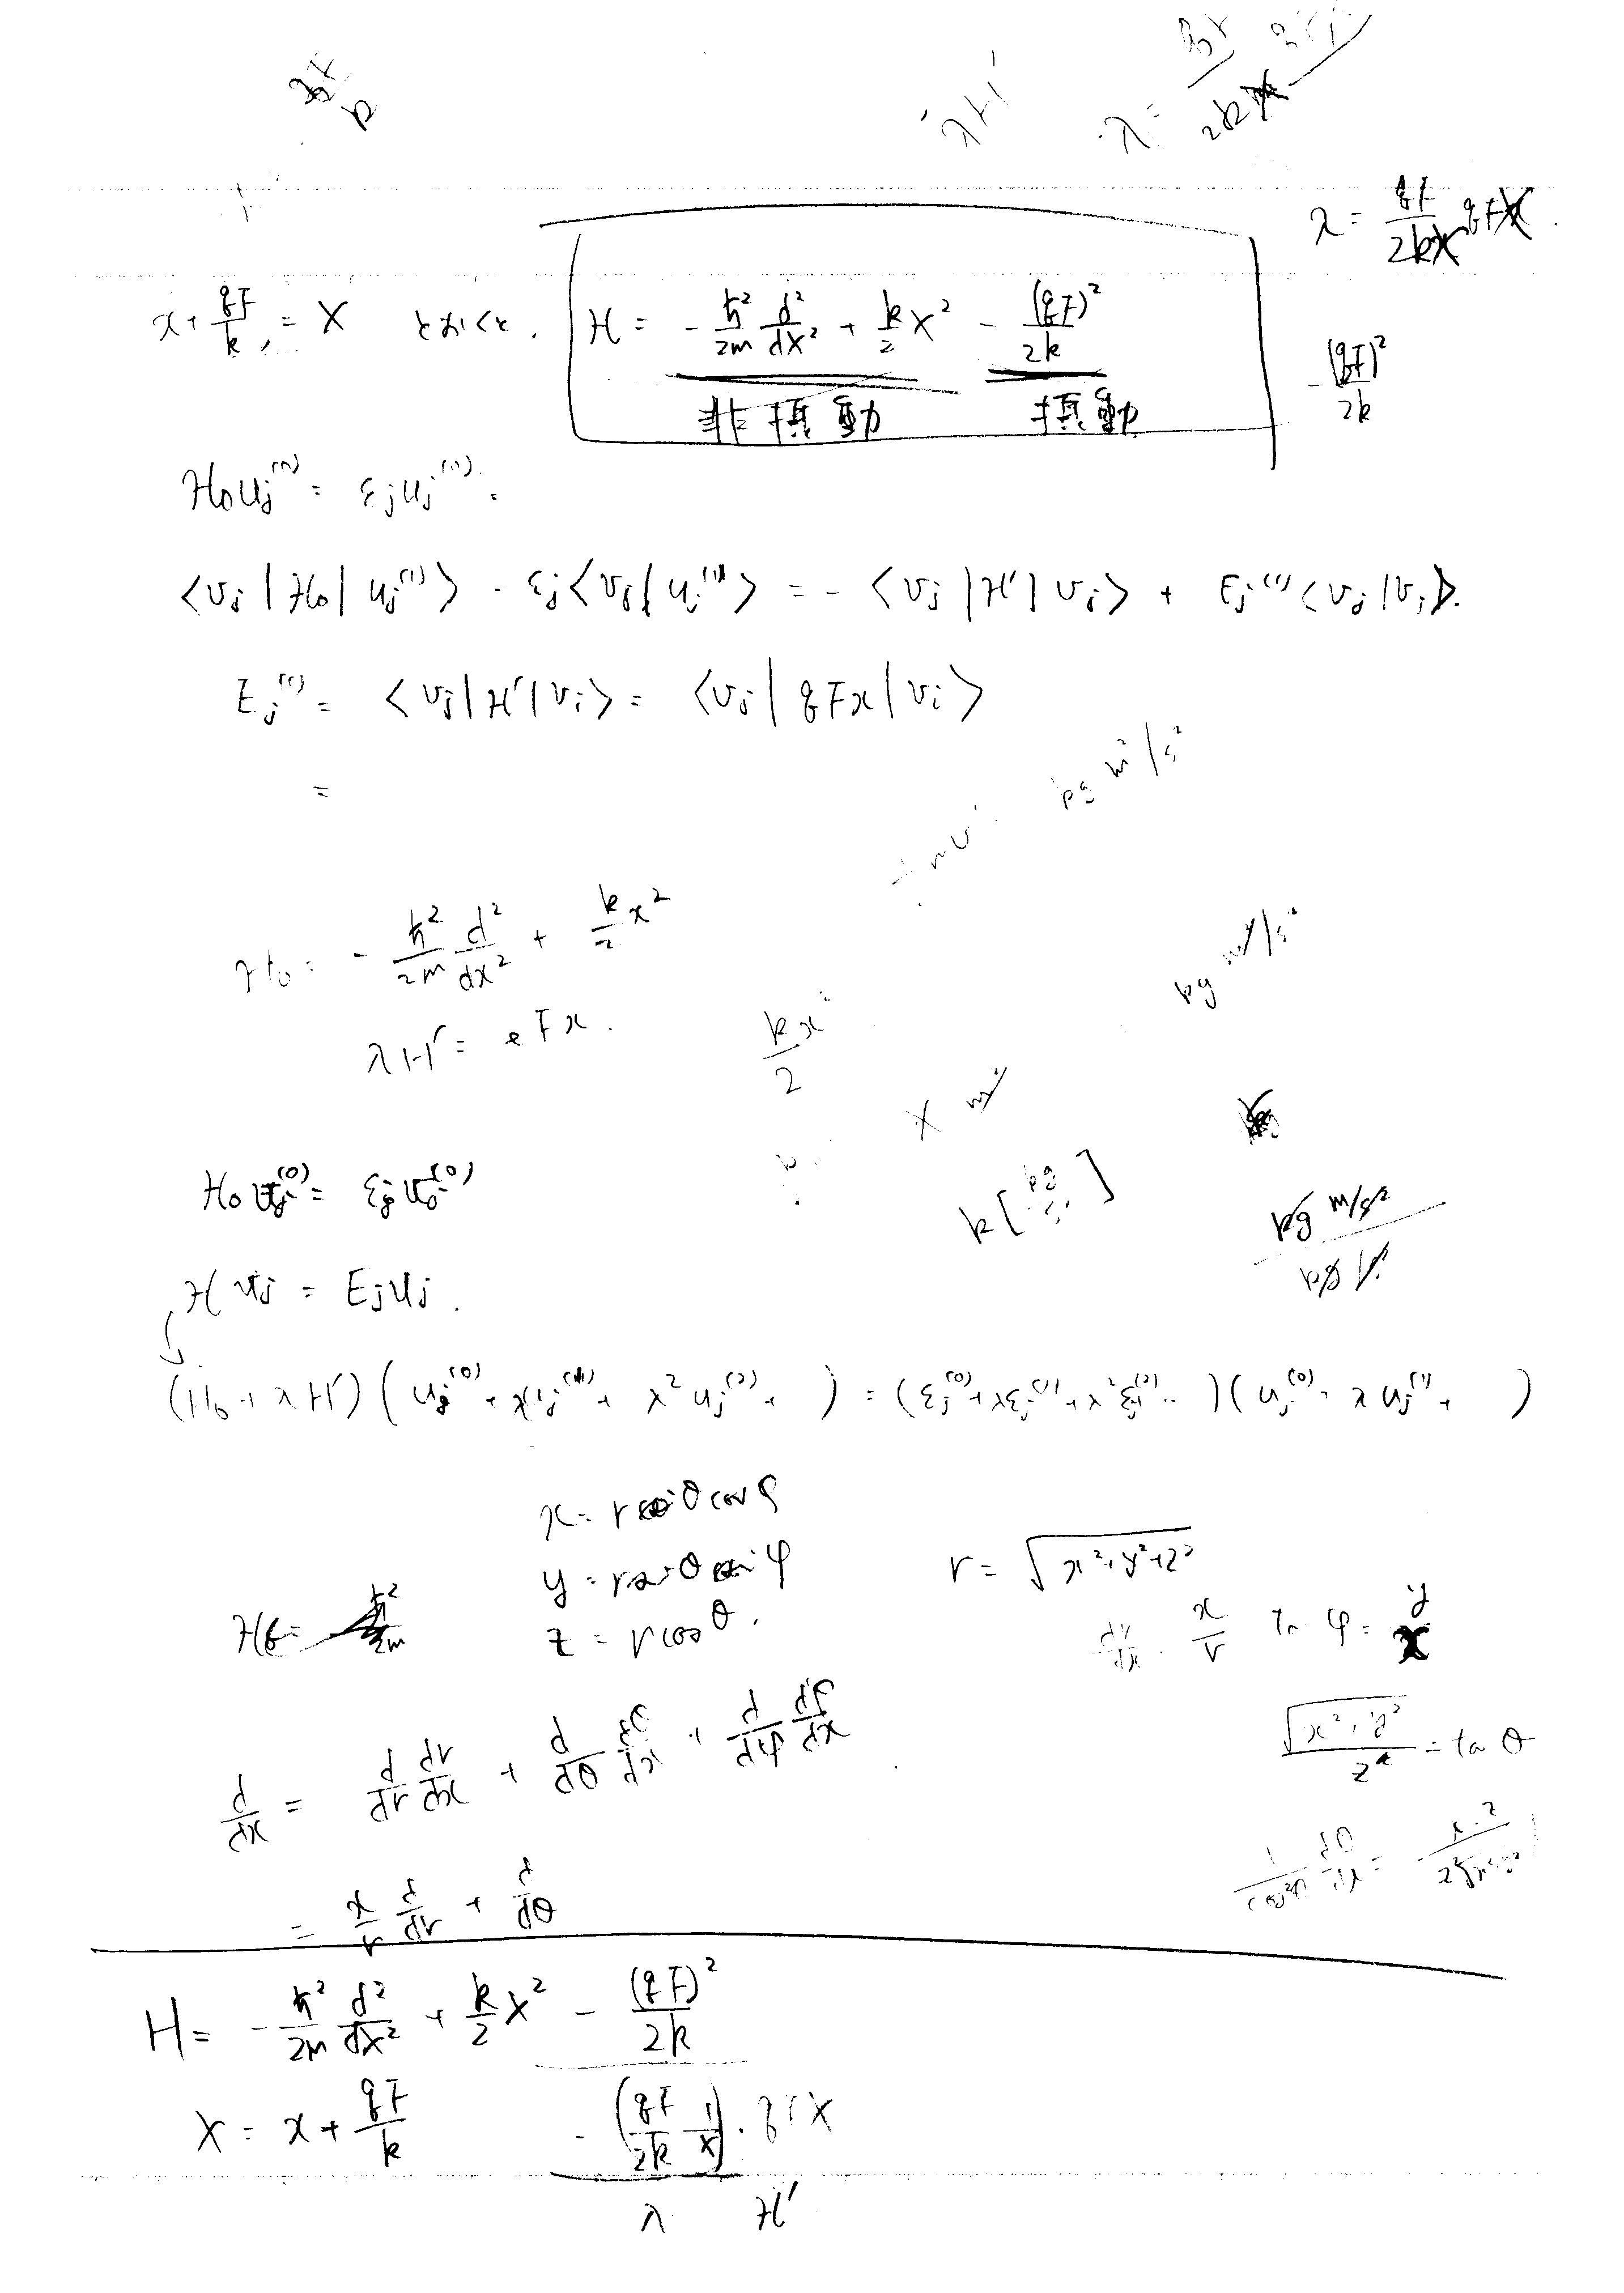 λ = qF/2kx qFx
x + qF/k = X とおくと. H = -ħ²/2m d²/dX² + k/2 X² - (qF)²/2k
非摂動 摂動
-(qF)²/2k
H₀uⱼ⁽¹⁾ = εⱼuⱼ⁽¹⁾.
<vⱼ|H₀|uⱼ⁽¹⁾> - εⱼ<vⱼ|uⱼ⁽¹⁾> = -<vⱼ|H'|vⱼ> + Eⱼ⁽¹⁾<vⱼ|vⱼ>.
Eⱼ⁽¹⁾ = <vⱼ|H'|vⱼ> = <vⱼ|qFx|vⱼ>
=
kg m²/s²
H₀ = -ħ²/2m d²/dx² + k/2 x²
kg m²/s²
λH' = eFx.
kx²/2
H₀uⱼ⁽⁰⁾ = εⱼuⱼ⁽⁰⁾
kg m/s²
Huⱼ = Eⱼuⱼ.
(H₀ + λH')(uⱼ⁽⁰⁾ + λuⱼ⁽¹⁾ + λ²uⱼ⁽²⁾ + ) = (εⱼ⁽⁰⁾ + λεⱼ⁽¹⁾ + λ²εⱼ⁽²⁾ ‥)(uⱼ⁽⁰⁾ + λuⱼ⁽¹⁾ + )
x = r sinθ cosφ
y = r sinθ sinφ
r = √x²+y²+z²
z = r cosθ.
dr/dx = x/r
tan φ = y/x
√x²+y²/z = tan θ
d/dx = d/dr dr/dx + d/dθ dθ/dx + d/dφ dφ/dx
= x/r d/dr + d/dθ
H = -ħ²/2m d²/dX² + k/2 X² - (qF)²/2k
X = x + qF/k
-(qF/2k 1/X)·qFX
λ H'